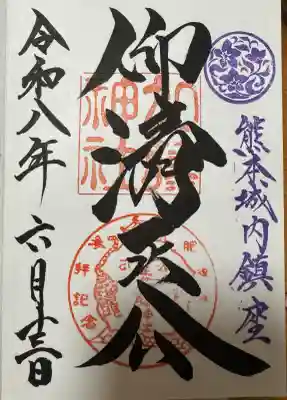 熊本城内鎮座
仰清正公
加藤神社
参拝記念
令和八年 六月十三日